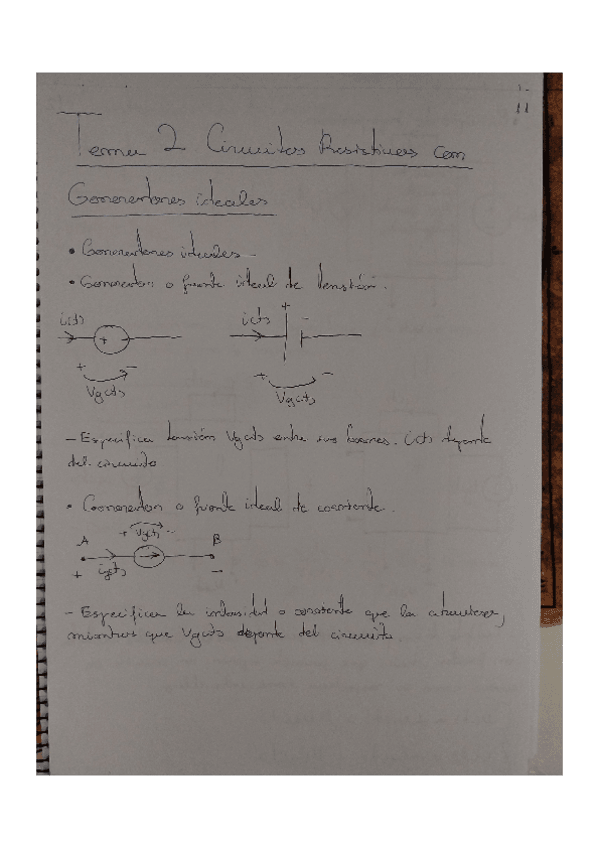 Tema 2 Circuitos Resistivos con
Generadores ideales
• Generadores ideales.
• Generador o fuente ideal de tensión.
i(t) i(t) + -
+
+ - + -
Vg(t) Vg(t)
- Especifica tensión Vg(t) entre sus bornes. i(t) depende
del circuito
• Generador o fuente ideal de corriente.
+ Vg(t) -
A B
+ ig(t) -
- Especifica la intensidad o corriente que la atraviesa,
mientras que Vg(t) depende del circuito.